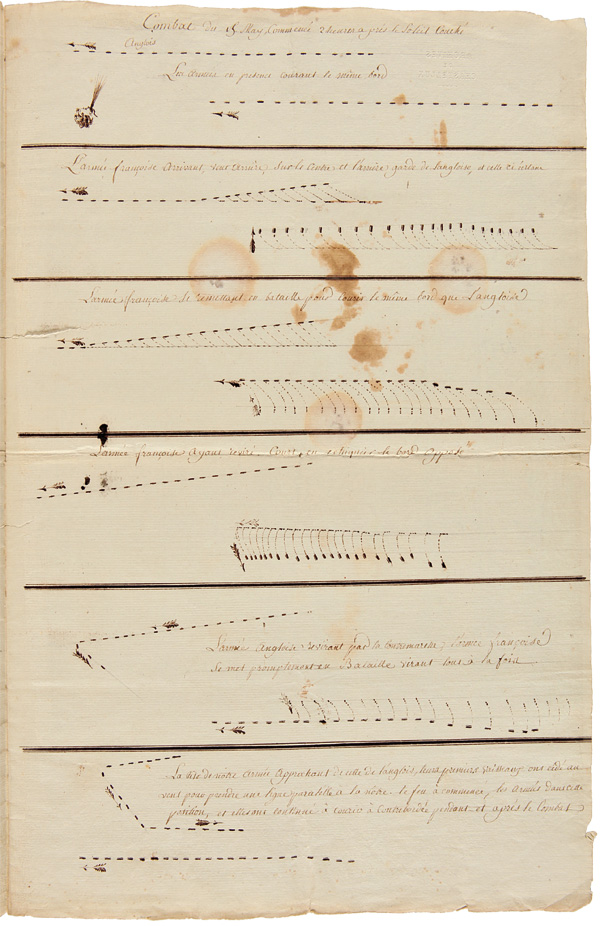 Combat du 15 May, Commencé 2 heures après le Soleil Couché
Anglois
Les Armées en présence courant le même bord
L'armée françoise Arrivant, vent arrière, sur le Centre et l'arrière garde de l'angloise, et celle ci
L'armée françoise Se remettant en bataille pour courir le même bord que L'angloise
L'armée françoise Ayant reviré, Court en echiquier le bord opposé
L'armée Angloise revirant par la contremarche, l'armée françoise
Se met promptement en Bataille virant tous à la fois
La tête de nôtre Armée Approchant de celle de l'anglois, leurs premiers Vaisseaux ont cédé au
vent pour prendre une ligne parallele à la nôtre. le feu à commencé, les Armées dans cette
position, et elles ont continué à courir à Contrebord pendant et après le Combat